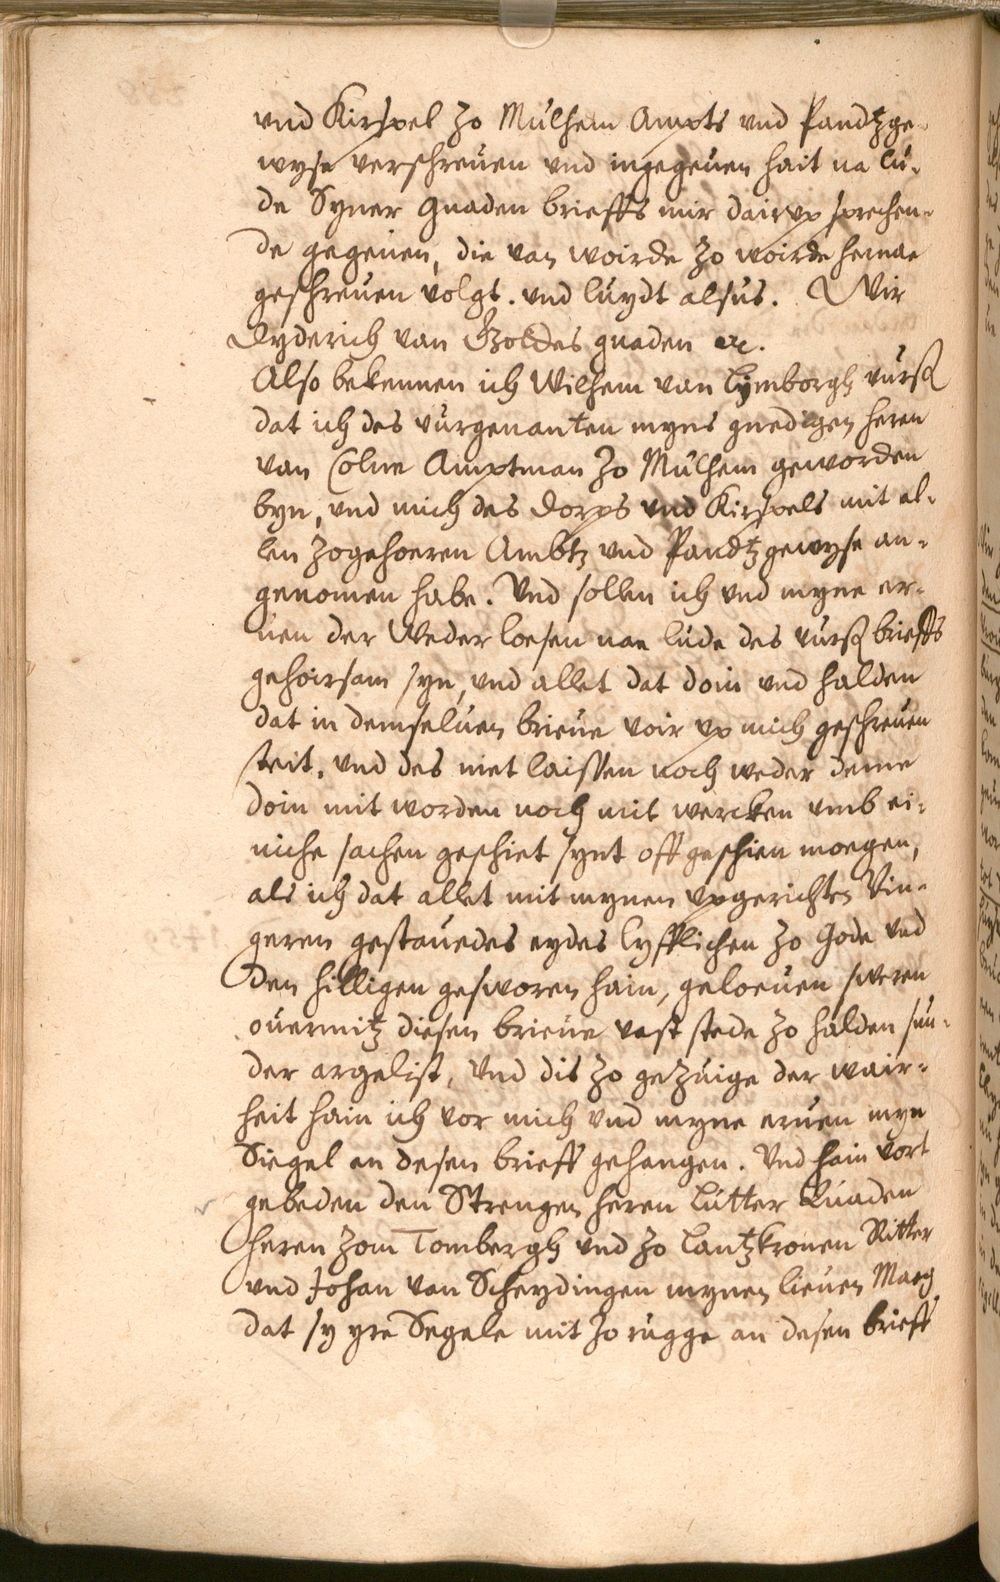 vnd Kirspel zo Mülhem Ampts vnd Pandtzge-
wyse verschreuen vnd ingegeuen hait na lu-
de Syner Gnaden brieffs mir dairup sprechen-
de gegeuen, die van woirde zo woirde hernae
geschreuen volgt. vnd luydt alsus. Wir
Dyderich van Goldes gnaden etc.
Also bekennen ich Wilhem van Lymborgh vurß
dat ich des vurgenanten myns gnedigen heren
van Colne Amptman zo Mülhem geworden
byn, vnd mich des dorps vnd Kirspels mit al-
len zogehoeren Ambtz vnd Pandtzgewyse an-
genomen habe. Vnd sollen ich vnd myne er-
uen der Wederloesen nae lude des vurß brieffs
gehoirsam syn, vnd allet dat doin vnd halden
dat in demseluen brieue voir vp mich geschreuen
steit, vnd des niet laissen noch weder deme
doin mit worden noch mit wercken vmb ei-
niche sachen geschiet synt off geschien moegen,
als ich dat allet mit mynen vpgerichten Vin-
geren gestauedes eydes lyfflichen zo Gode vnd
den hilligen gesworen hain, geloeuen sweren
ouermitz diesen brieue vast stede zo halden sun-
der argelist, Vnd dis zo gezuige der wair-
heit hain ich vor mich vnd myne eruen myn
Siegel an desen brieff gehangen. Vnd hain vort
gebeden den Strengen heren Lutter Quaden
heren zom Tombergh vnd zo Lantzkronen Ritter
vnd Johan van Scheydingen mynen lieuen Maeg
dat sy yre Segele mit zo rugge an desen brieff